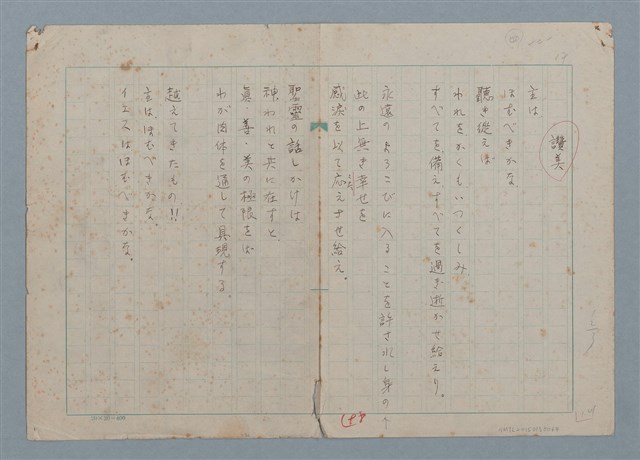 讃美
主は
ほむべきかな
聴き従えば
われをかくもいつくしみ
すべてを備えすべてを過ぎ逝かせ給えり。
永遠のよろこびに入ることを許されし身の
此の上無き幸せを
感涙を以て応えさせ給え。
聖霊の話しかけは
神われと共に在すと
真・善・美の極限をば
わが肉体を通して具現する。
越えてきたもの!!
主は、ほむべきかな、
イエスはほむべきかな。